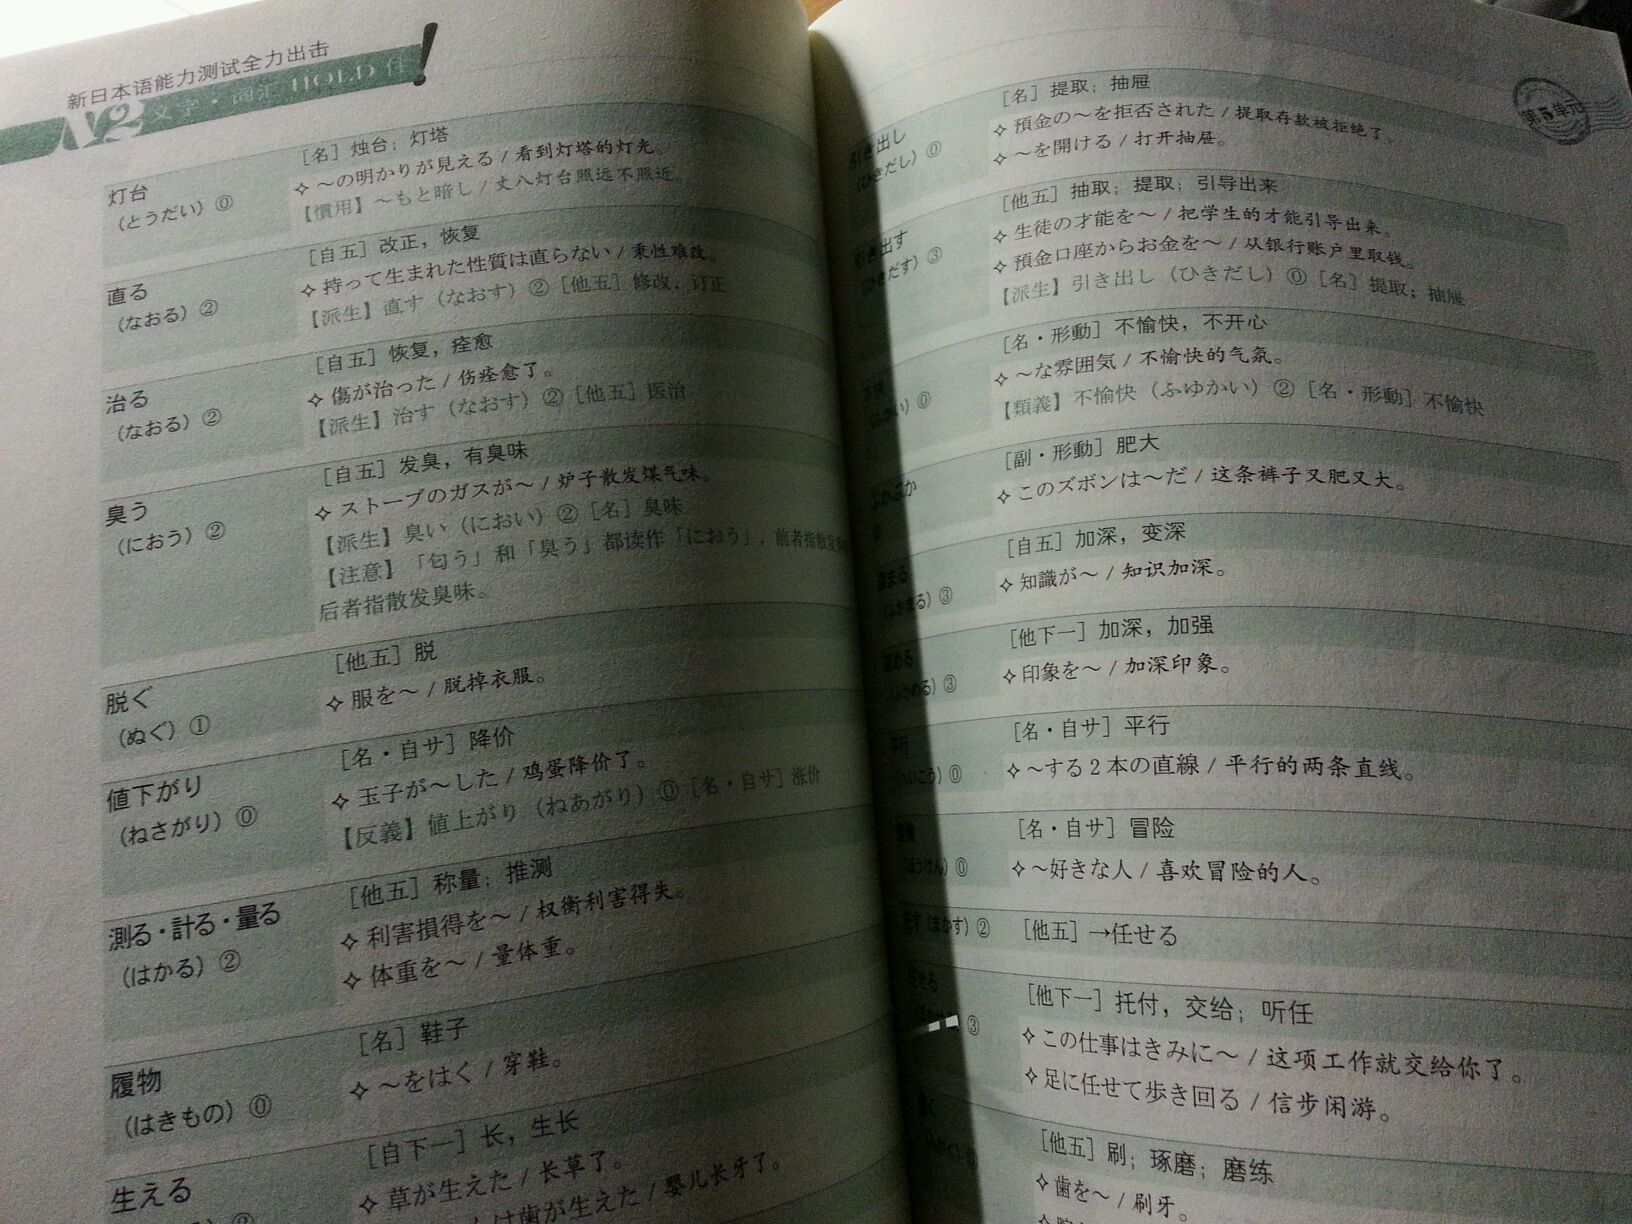 新日本语能力测试全力出击
N2 文字·词汇 HOLD住!
灯台
（とうだい）⓪
［名］烛台；灯塔
✧ ～の明かりが見える / 看到灯塔的灯光。
【慣用】～もと暗し / 丈八灯台照远不照近。
直る
（なおる）②
［自五］改正，恢复
✧ 持って生まれた性質は直らない / 秉性难改。
【派生】直す（なおす）②［他五］修改，订正
治る
（なおる）②
［自五］恢复，痊愈
✧ 傷が治った / 伤痊愈了。
【派生】治す（なおす）②［他五］医治
臭う
（におう）②
［自五］发臭，有臭味
✧ ストーブのガスが～ / 炉子散发煤气味。
【派生】臭い（におい）②［名］臭味
【注意】「匂う」和「臭う」都读作「におう」，前者指散发
后者指散发臭味。
脱ぐ
（ぬぐ）①
［他五］脱
✧ 服を～ / 脱掉衣服。
値下がり
（ねさがり）⓪
［名・自サ］降价
✧ 玉子が～した / 鸡蛋降价了。
【反義】値上がり（ねあがり）⓪［名・自サ］涨价
測る・計る・量る
（はかる）②
［他五］称量；推测
✧ 利害損得を～ / 权衡利害得失。
✧ 体重を～ / 量体重。
履物
（はきもの）⓪
［名］鞋子
✧ ～をはく / 穿鞋。
生える
②
［自下一］长，生长
✧ 草が生えた / 长草了。
は歯が生えた / 婴儿长牙了。
第5单元
引き出し
（ひきだし）⓪
［名］提取；抽屉
✧ 預金の～を拒否された / 提取存款被拒绝了。
✧ ～を開ける / 打开抽屉。
引き出す
（ひきだす）③
［他五］抽取；提取；引导出来
✧ 生徒の才能を～ / 把学生的才能引导出来。
✧ 預金口座からお金を～ / 从银行账户里取钱。
【派生】引き出し（ひきだし）⓪［名］提取；抽屉
不快
（ふかい）⓪
［名・形動］不愉快，不开心
✧ ～な雰囲気 / 不愉快的气氛。
【類義】不愉快（ふゆかい）②［名・形動］不愉快
ぶかぶか
［副・形動］肥大
✧ このズボンは～だ / 这条裤子又肥又大。
深まる
（ふかまる）③
［自五］加深，变深
✧ 知識が～ / 知识加深。
深める
（ふかめる）③
［他下一］加深，加强
✧ 印象を～ / 加深印象。
平行
（へいこう）⓪
［名・自サ］平行
✧ ～する2本の直線 / 平行的两条直线。
冒険
（ぼうけん）⓪
［名・自サ］冒险
✧ ～好きな人 / 喜欢冒险的人。
任す（まかす）②
［他五］→任せる
任せる
③
［他下一］托付，交给；听任
✧ この仕事はきみに～ / 这项工作就交给你了。
✧ 足に任せて歩き回る / 信步闲游。
［他五］刷；琢磨；磨练
✧ 歯を～ / 刷牙。